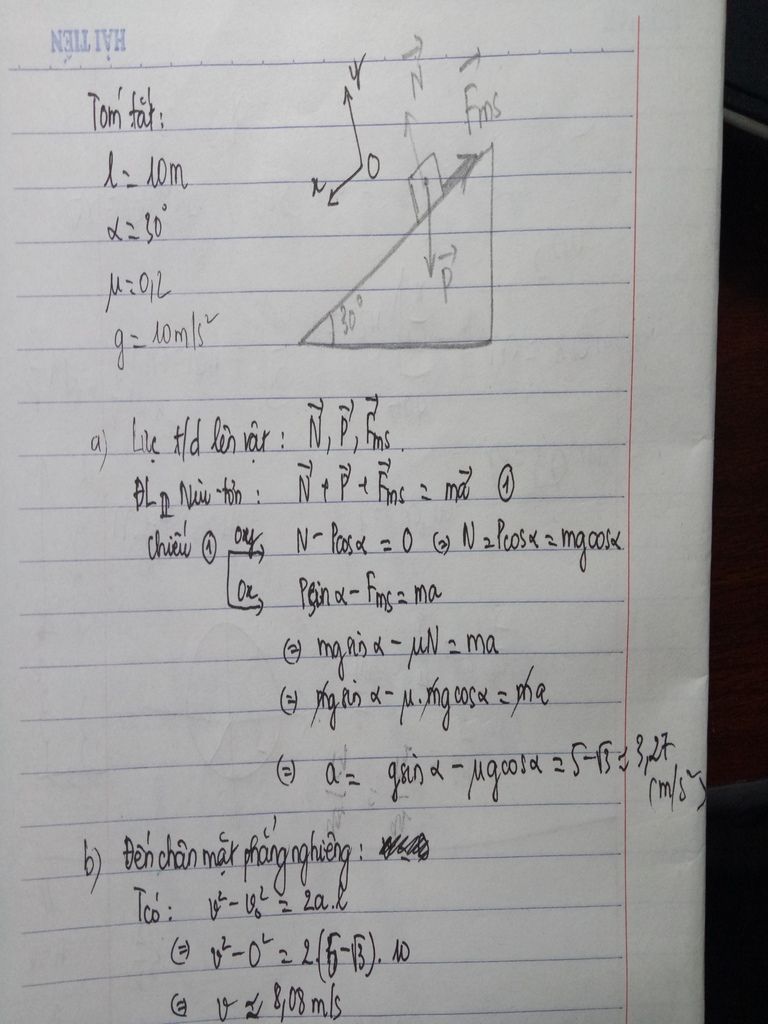 HẢI TIẾN
Tóm tắt:
l = 10m
α = 30°
μ = 0,2
g = 10m/s²
y
O
x
N⃗
F⃗ms
P⃗
30°
a) Lực t/d lên vật: N⃗, P⃗, F⃗ms.
ĐL II Niu-tơn: N⃗ + P⃗ + F⃗ms = ma⃗ ①
Chiếu ① Oy N - Pcosα = 0 ⇔ N = Pcosα = mgcosα
Ox Psinα - Fms = ma
⇔ mgsinα - μN = ma
⇔ mgsinα - μ.mgcosα = ma
⇔ a = gsinα - μgcosα = 5 - √3 ≈ 3,27 (m/s²)
b) Đến chân mặt phẳng nghiêng:
Tcó: v² - v₀² = 2a.l
⇔ v² - 0² = 2.(5-√3). 10
⇔ v ≈ 8,08 m/s